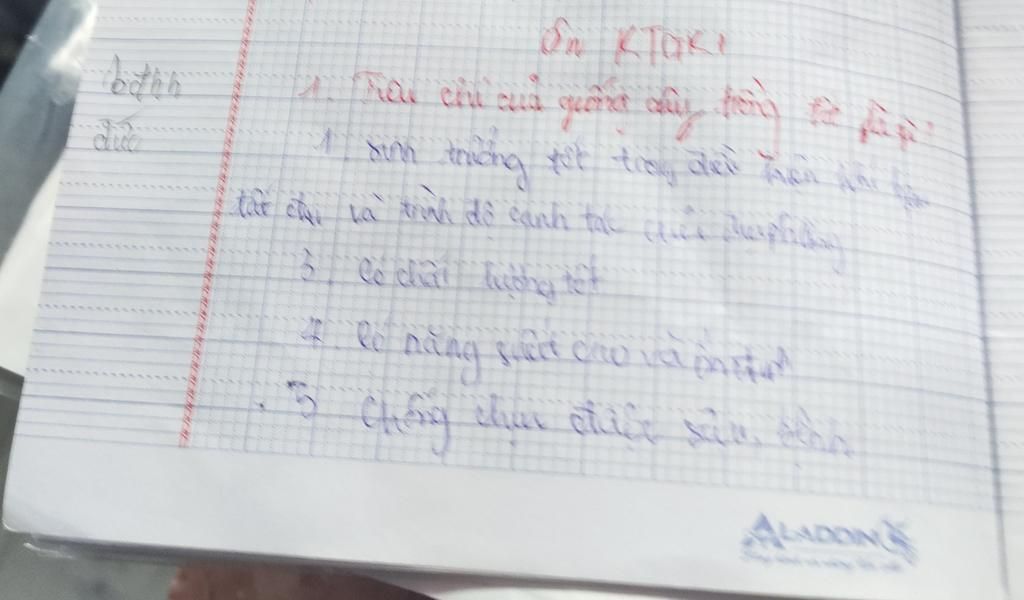 Ôn KTGK1
1. Tiêu chí của giống cây trồng tốt là gì?
1 sinh trưởng tốt trong điều kiện khí hậu
đất đai và trình độ canh tác của địa phương
3. Có chất lượng tốt
4. Có năng suất cao và ổn định
5 chống chịu được sâu, bệnh
ALADDIN